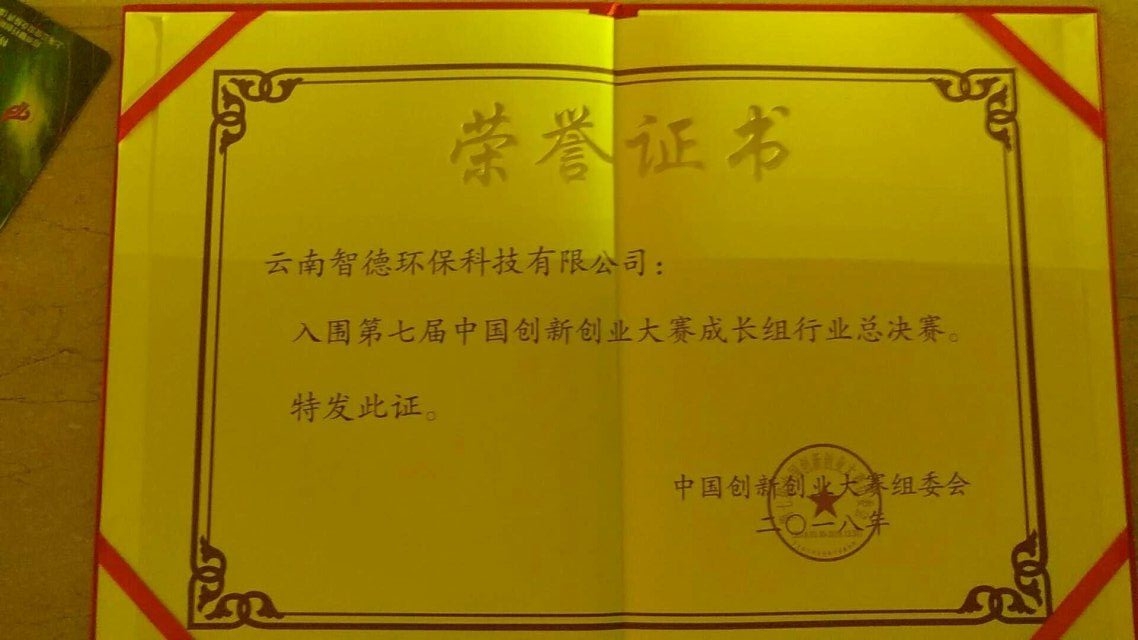 荣誉证书
云南智德环保科技有限公司：
入围第七届中国创新创业大赛成长组行业总决赛。
特发此证。
中国创新创业大赛组委会
二〇一八年